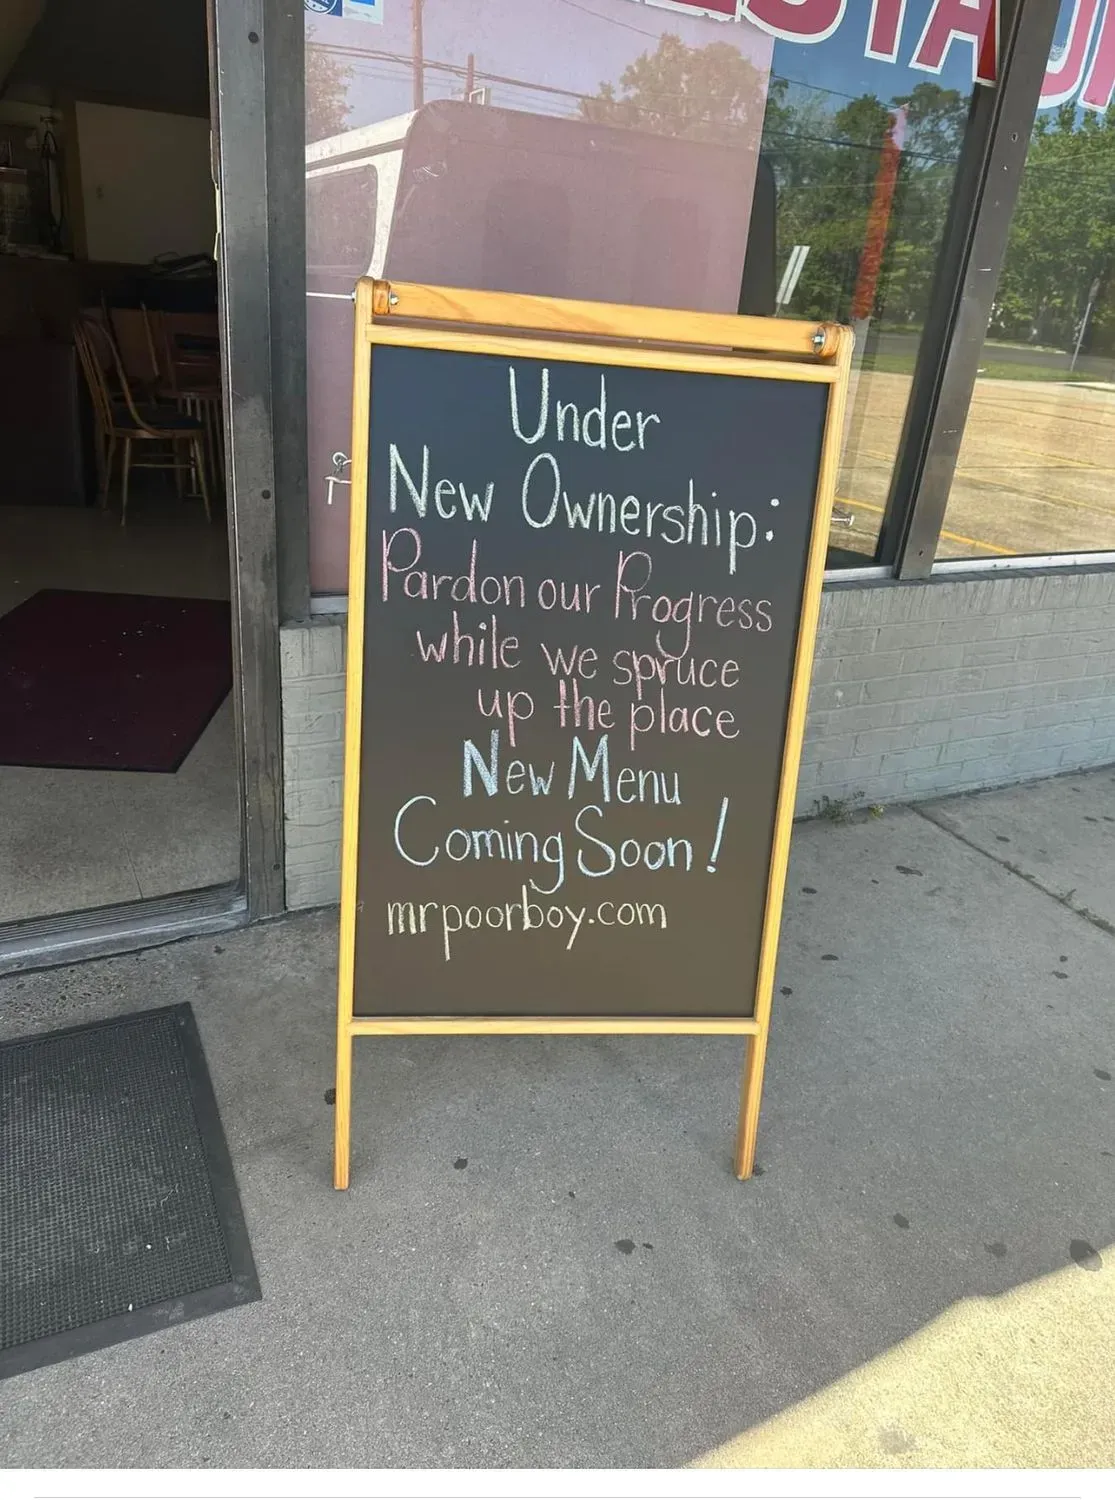 Under
New Ownership:
Pardon our Progress
while we spruce
up the place
New Menu
Coming Soon!
mrpoorboy.com